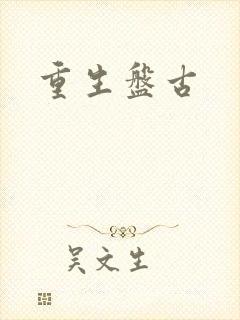 重生盤古
吴文生